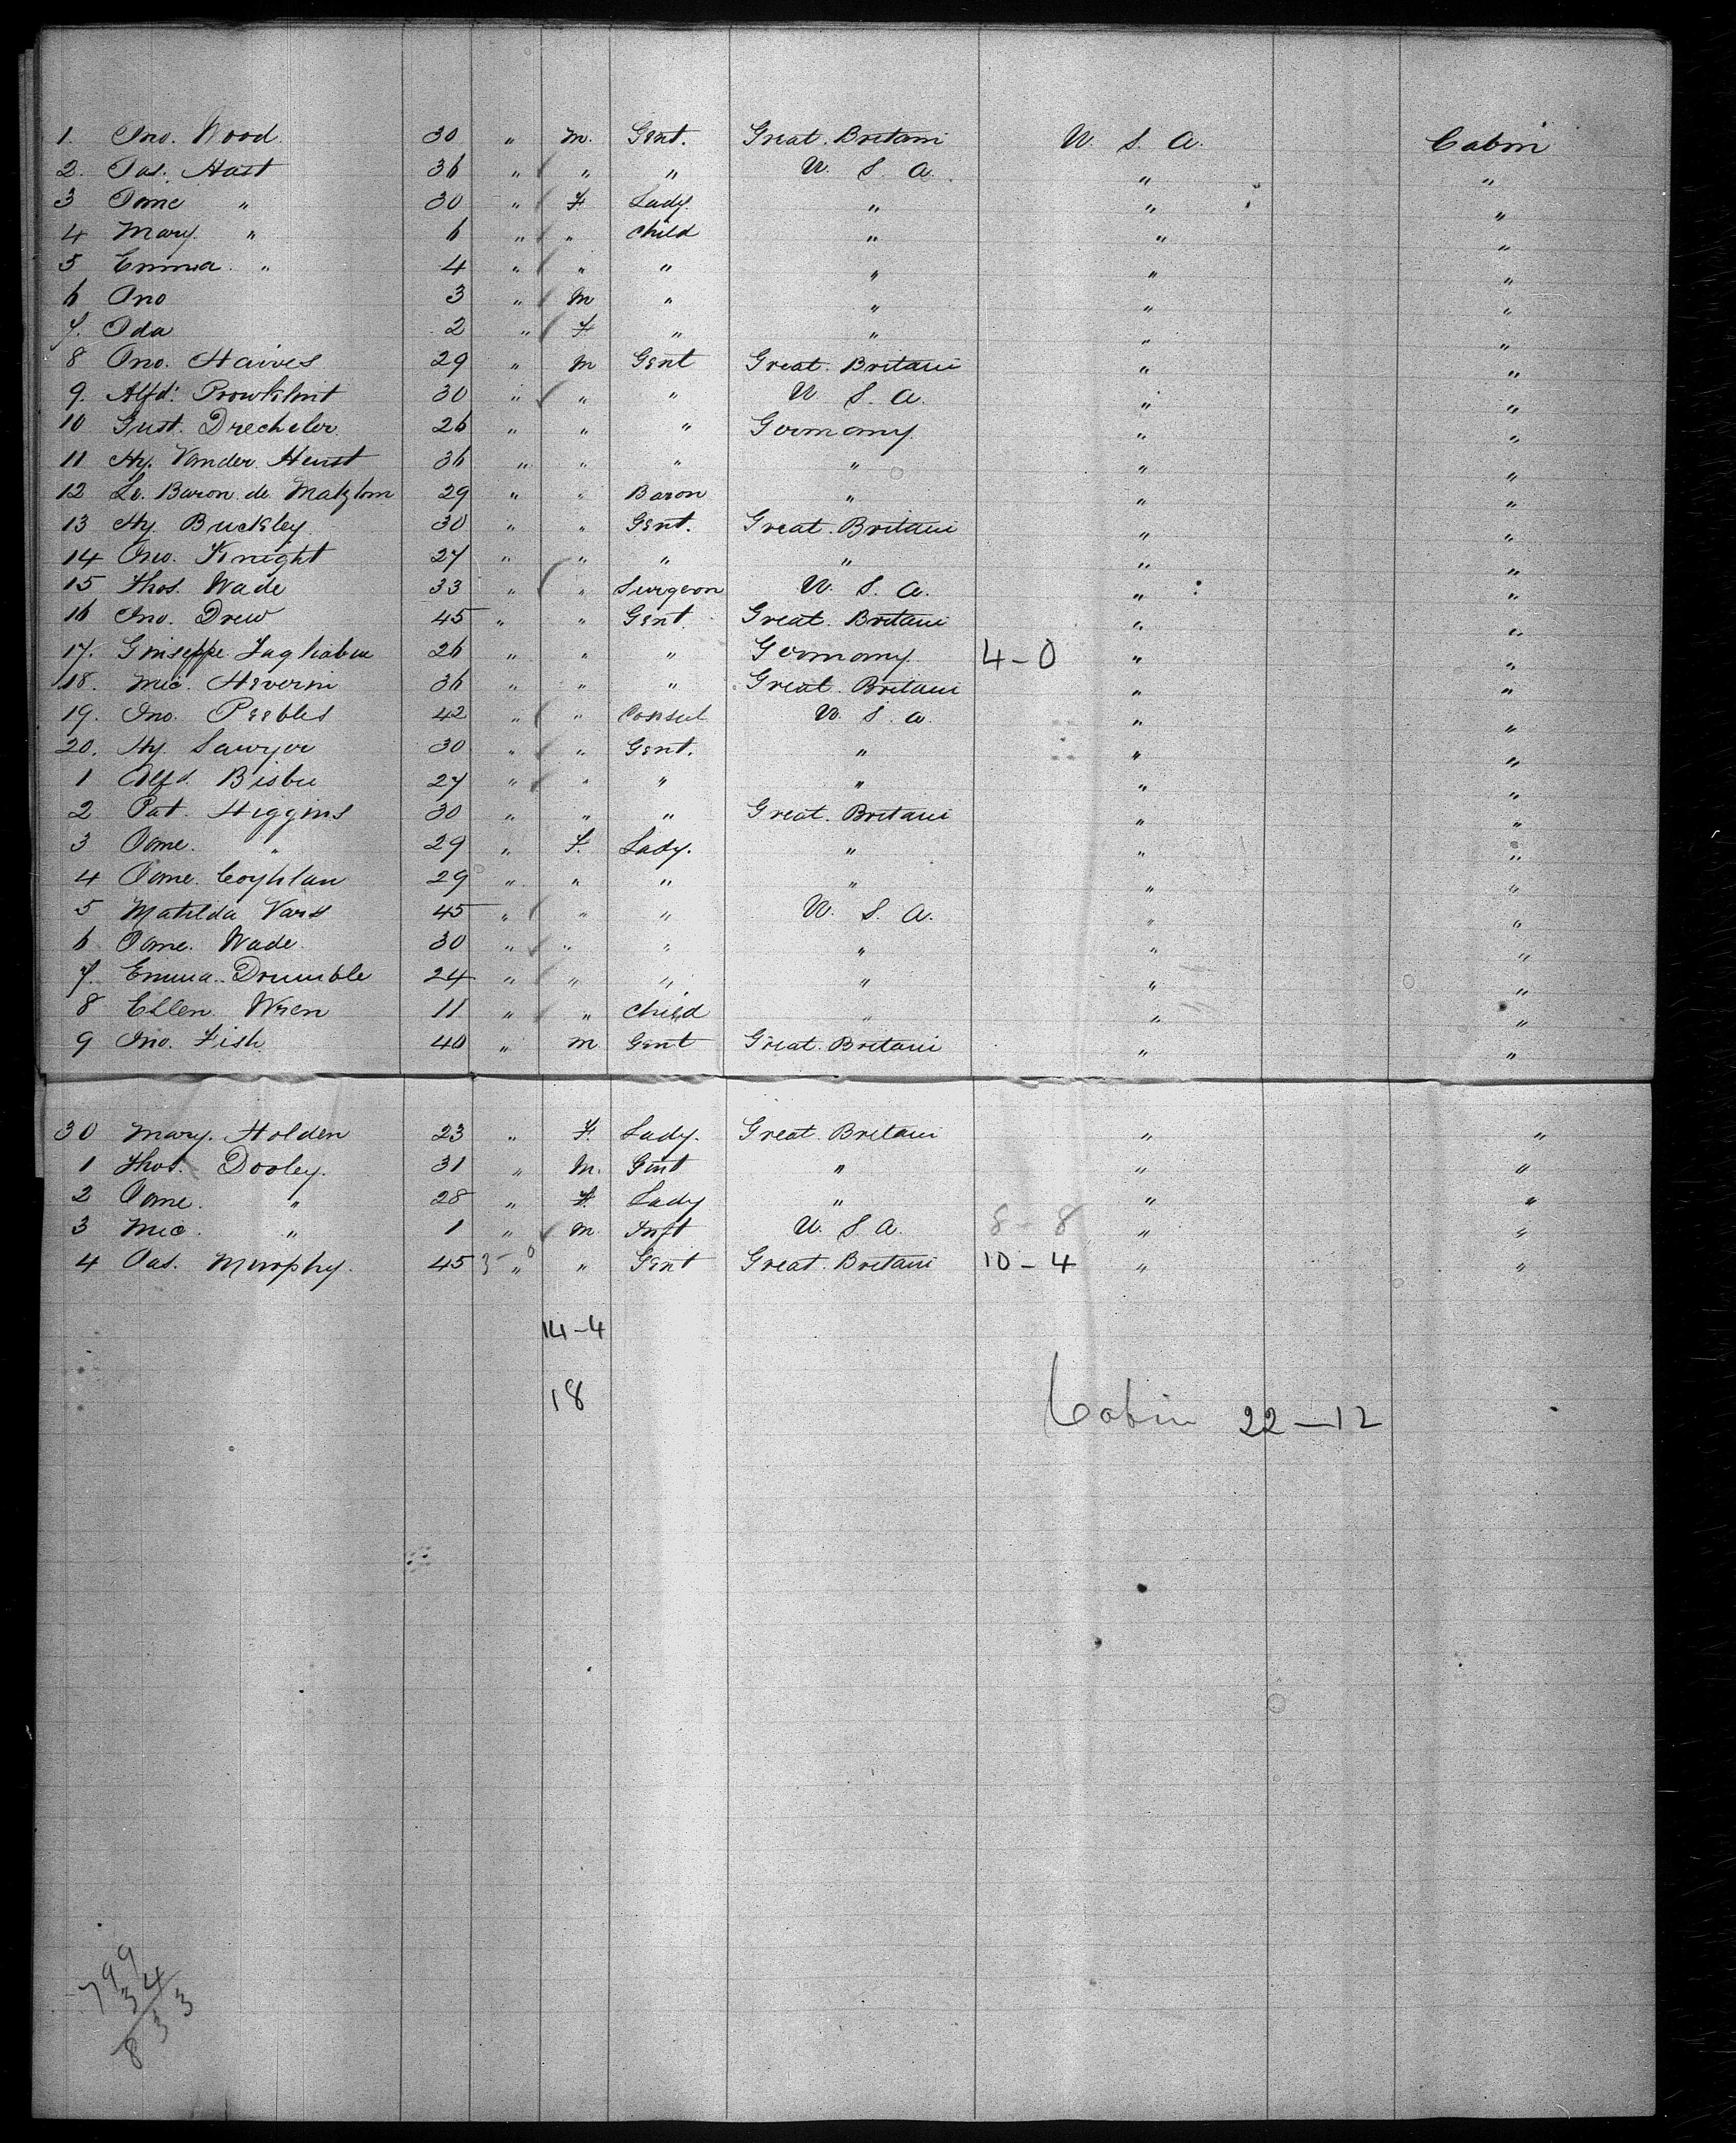 1. Jno. Wood 30 " M. Gent. Great Britain U. S. A. Cabin
2. Jas. Hast 36 " " " U. S. A. " "
3 Jane " 30 " F Lady. " " "
4 Mary. " 6 " " Child " " "
5 Emma. " 4 " " " " " "
6 Jno 3 " M " " " "
7. Ida 2 " F " " " "
8 Jno. Haives 29 " M Gent Great Britain " "
9. Alfd. 30 " " " U S. A. " "
10 Gust. Drecheler 26 " " " Germany. " "
11 Hy. Vander Heust 36 " " " " " "
12 Le. Baron de Matzlom 29 " " Baron " " "
13 Hy. Buckley 30 " " Gent. Great Britain " "
14 Jno. Knight 27 " " " " " "
15 Thos. Wade 33 " " Surgeon U. S. A. " "
16 Jno. Drew 45 " " Gent. Great Britain " "
17. Giuseppe 26 " " " Germany 4-0 " "
18. Mic. Heverin 36 " " " Great Britain " "
19. Jno. Peebles 42 " " Consul U. S. A. " "
20. Hy. Sawyer 30 " " Gent. " " "
1 Alfd. Bisbee 27 " " " " " "
2 Pat. Higgins 30 " " " Great Britain " "
3 Jane. " 29 " F. Lady. " " "
4 Jane. Coghlan 29 " " " " " "
5 Matilda Vars 45 " " " U. S. A. " "
6 Jane. Wade. 30 " " " " " "
7. Emma. Drumble 24 " " " " " "
8 Ellen Wren 11 " " Child " " "
9 Jno. Fish 40 " M Gent Great Britain " "
30 Mary. Holden 23 " F. Lady. Great Britain " "
1 Thos. Dooley. 31 " M. Gent " " "
2 Jane. " 28 " F. Lady " " "
3 Mic. " 1 " M. Inft U. S. A. 8-8 " "
4 Jas. Murphy. 45 3-0 " " Gent Great Britain 10-4 " "
14-4
18
Cabin 22-12
799
34
833